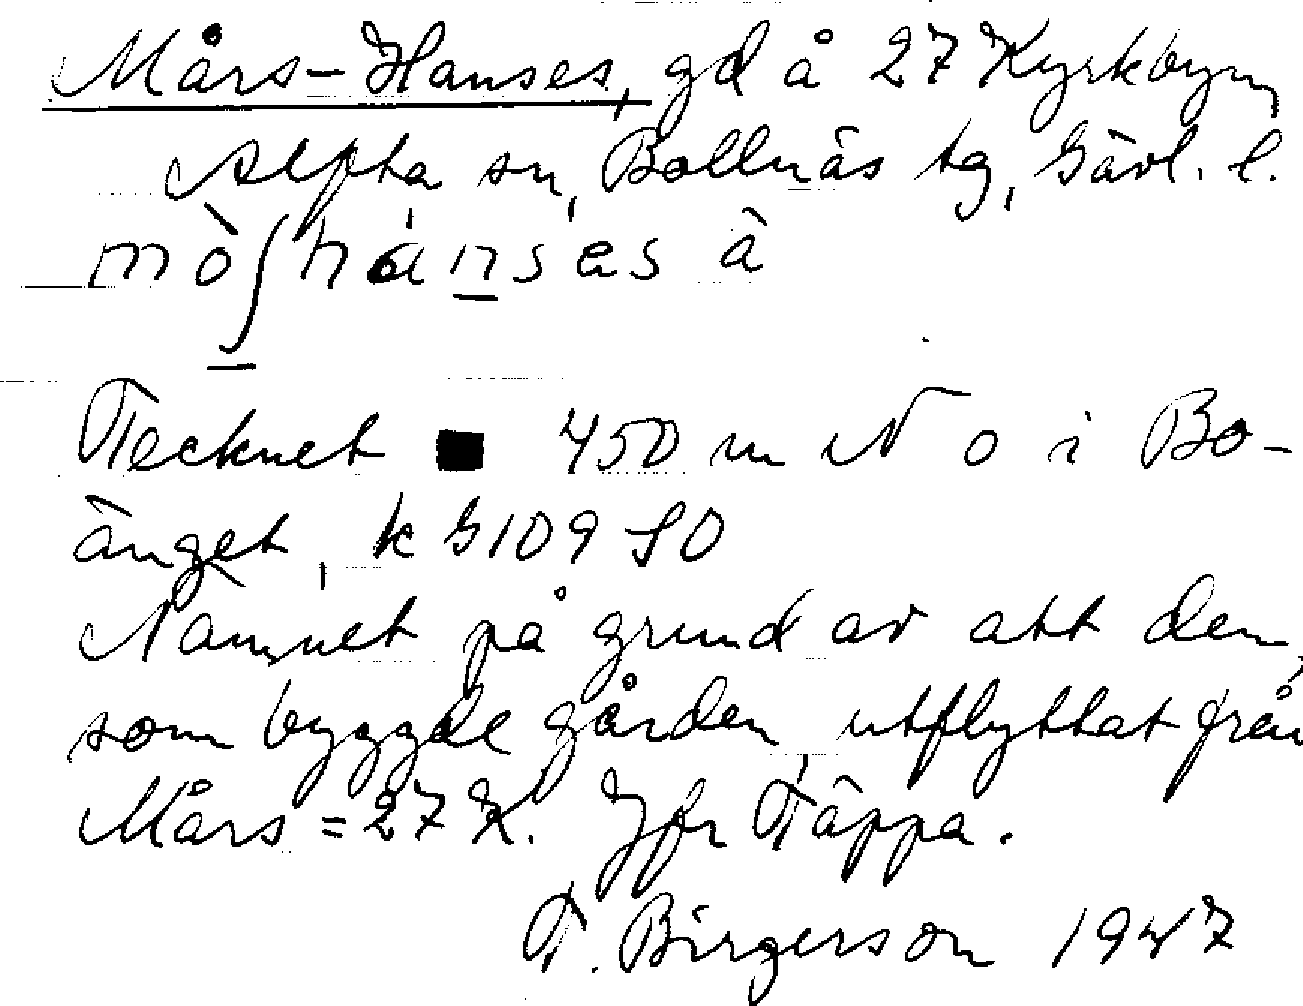 Mårs-Hanses, gd å 27 Kyrkbyn,
Alfta sn, Bollnäs tg, Gävl. l.
mòʃhánses â
Tecknet ■ 450 m N o i Bo-
änget, k G109 SO
Namnet på grund av att den,
som byggde gården, utflyttat från
Mårs = 27 K. Jfr Täppa.
T. Birgerson 1947